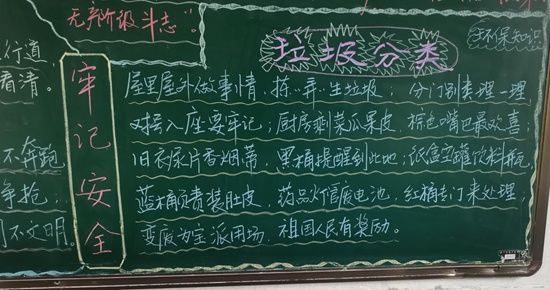 无产阶级斗志”。
行道,
看清。
不奔跑
争抢,
不文明。
牢记安全
环保知识
垃圾分类
屋里屋外做事情,拣一弄一生垃圾,分门别类理一理,
对号入座要牢记;厨房剩菜瓜果皮,棕色嘴巴最欢喜;
旧衣尿片香烟蒂,黑桶提醒到此地;纸盒空罐饮料瓶,
蓝桶负责装肚皮,药品灯管废电池,红桶专门来处理;
变废为宝派用场,祖国人民有奖励。